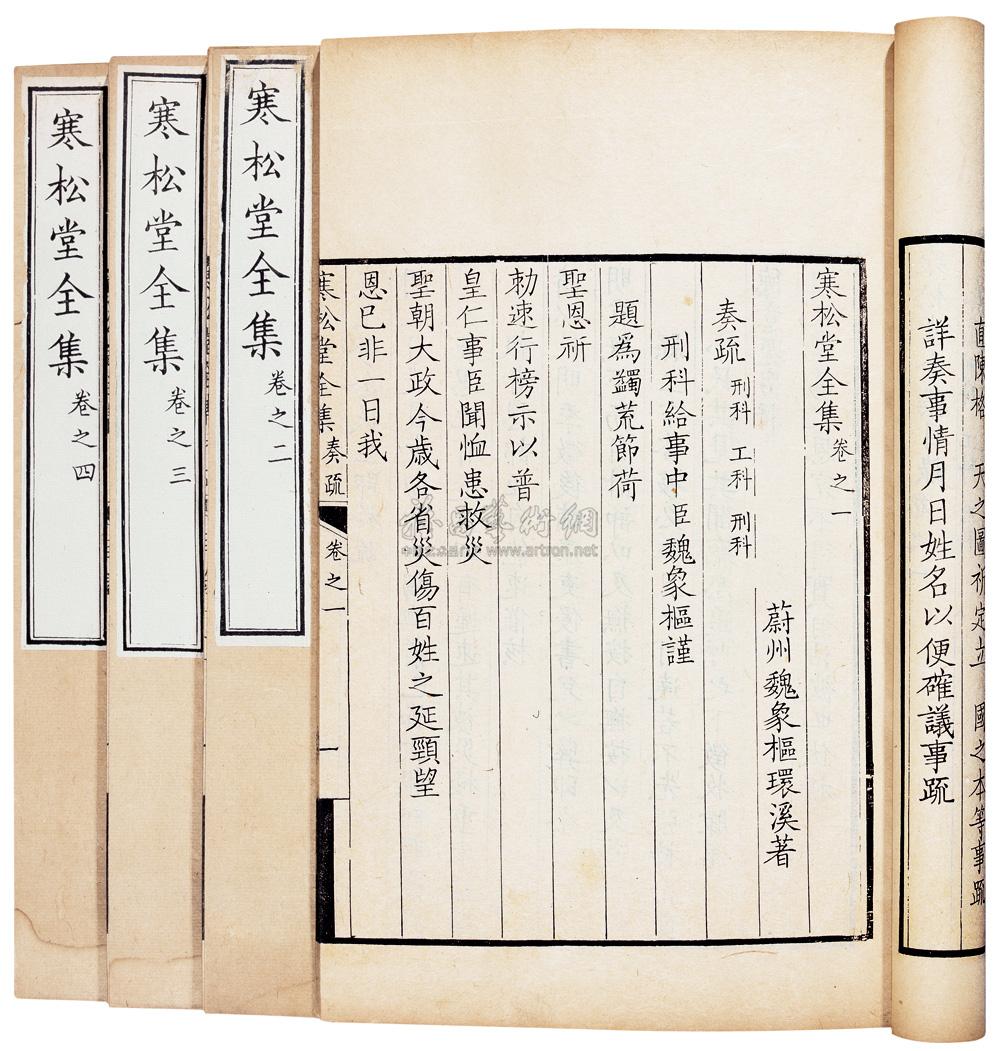 直陳格 天之圖祈定立 國之本等事疏
詳奏事情月日姓名以便確議事疏
寒松堂全集 卷之一
蔚州魏象樞環溪著
奏疏 刑科 工科 刑科
刑科給事中臣魏象樞謹
題為蠲荒節荷
聖恩祈
勅速行榜示以普
皇仁事臣聞恤患救災
聖朝大政今歲各省災傷百姓之延頸望
恩已非一日我
寒松堂全集 奏疏 卷之一 一
寒松堂全集 卷之二
寒松堂全集 卷之三
寒松堂全集 卷之四
www.artron.net